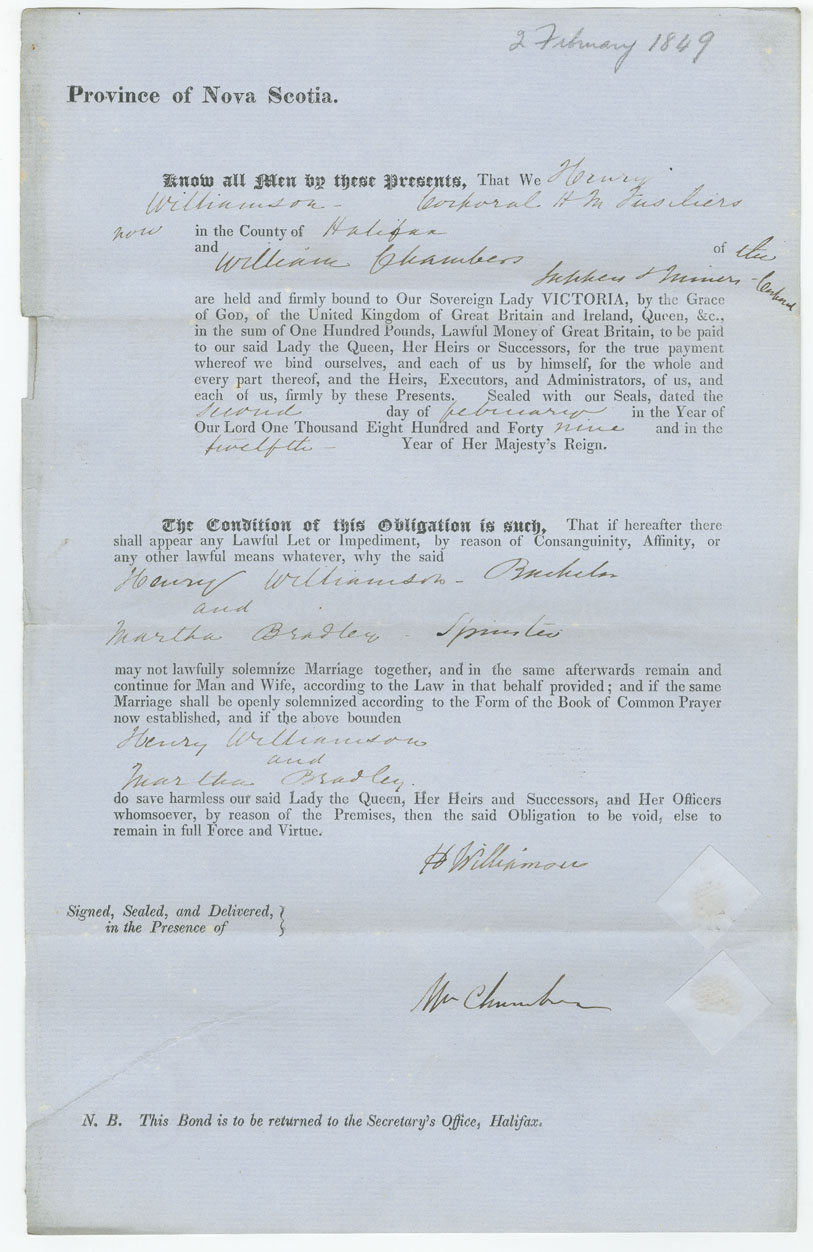 2 February 1849
Province of Nova Scotia.
Know all Men by these Presents, That We Henry
Williamson - Corporal H M Fusiliers
now in the County of Halifax
and William Chambers of the
Sappers & Miners - Corporal
are held and firmly bound to Our Sovereign Lady VICTORIA, by the Grace
of GOD, of the United Kingdom of Great Britain and Ireland, Queen, &c.,
in the sum of One Hundred Pounds, Lawful Money of Great Britain, to be paid
to our said Lady the Queen, Her Heirs or Successors, for the true payment
whereof we bind ourselves, and each of us by himself, for the whole and
every part thereof, and the Heirs, Executors, and Administrators, of us, and
each of us, firmly by these Presents. Sealed with our Seals, dated the
second day of february in the Year of
Our Lord One Thousand Eight Hundred and Forty nine and in the
twelfth - Year of Her Majesty's Reign.
The Condition of this Obligation is such, That if hereafter there
shall appear any Lawful Let or Impediment, by reason of Consanguinity, Affinity, or
any other lawful means whatever, why the said
Henry Williamson - Bachelor
and
Martha Bradley - Spinster
may not lawfully solemnize Marriage together, and in the same afterwards remain and
continue for Man and Wife, according to the Law in that behalf provided; and if the same
Marriage shall be openly solemnized according to the Form of the Book of Common Prayer
now established, and if the above bounden
Henry Williamson
and
Martha Bradley.
do save harmless our said Lady the Queen, Her Heirs and Successors, and Her Officers
whomsoever, by reason of the Premises, then the said Obligation to be void, else to
remain in full Force and Virtue.
H Williamson
Signed, Sealed, and Delivered,
in the Presence of
Wm Chambers
N. B. This Bond is to be returned to the Secretary's Office, Halifax.